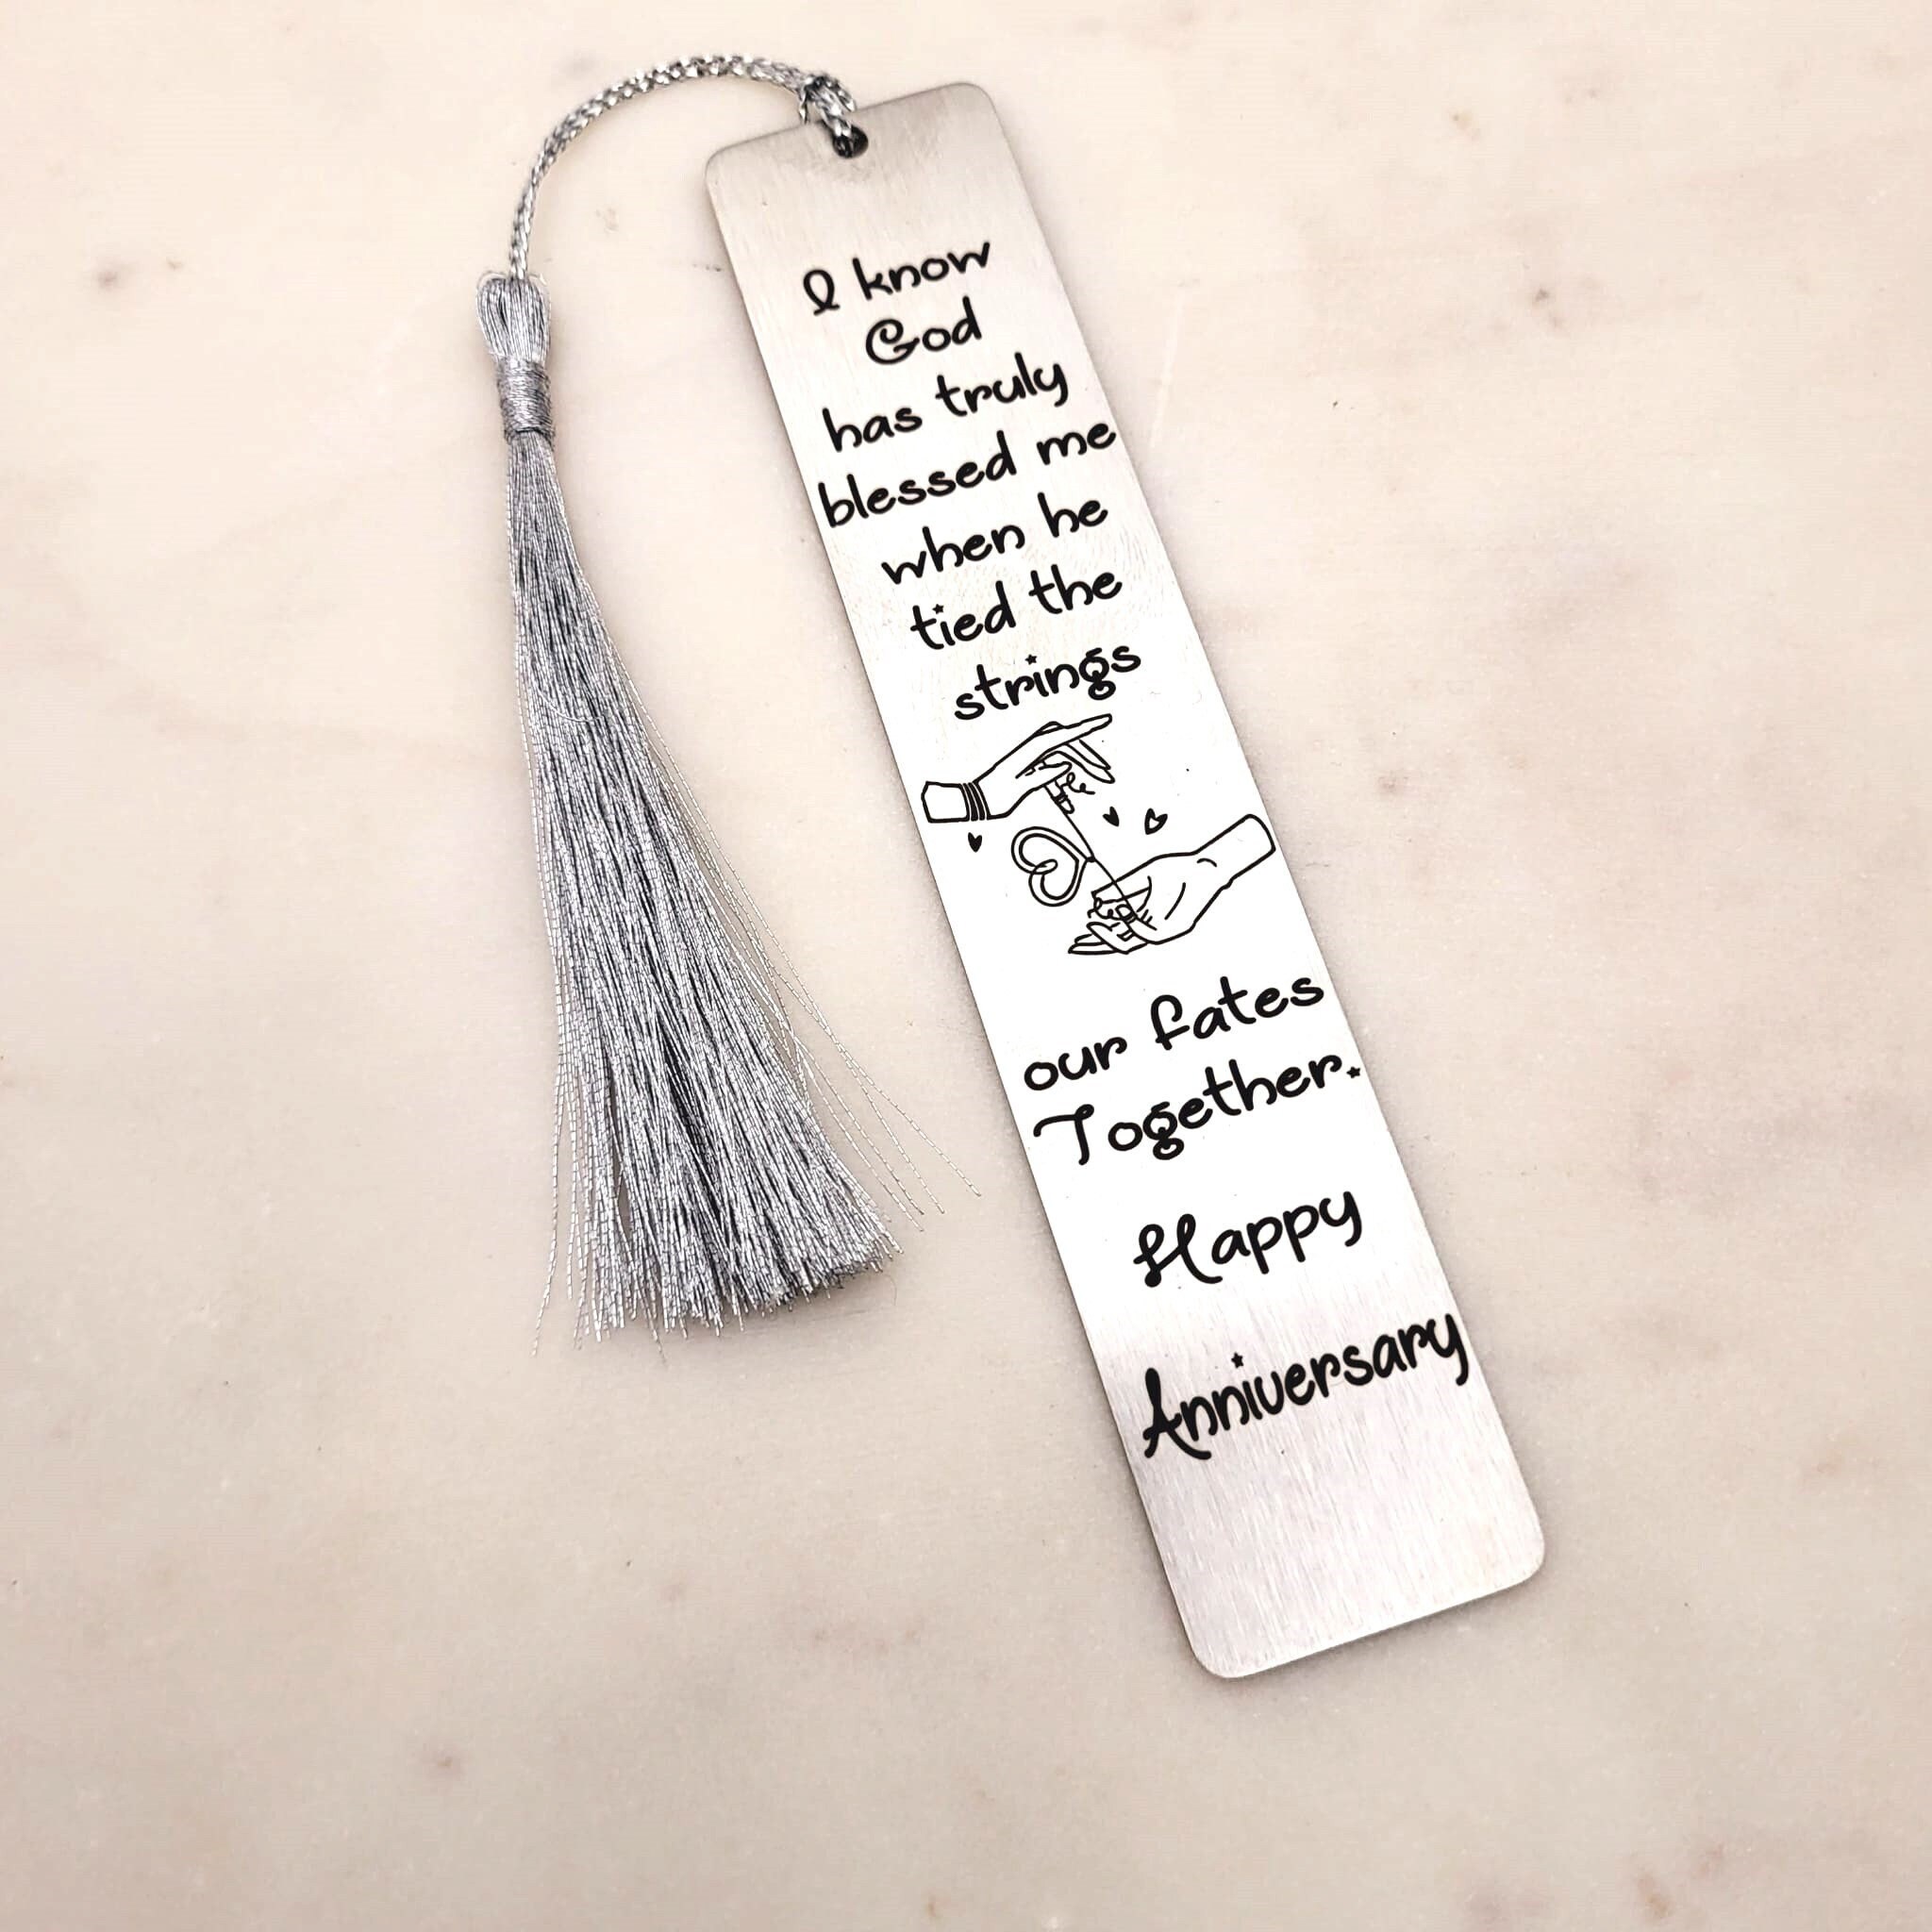 I know
God
has truly
blessed me
when he
tied the
strings
our fates
Together.
Happy
Anniversary